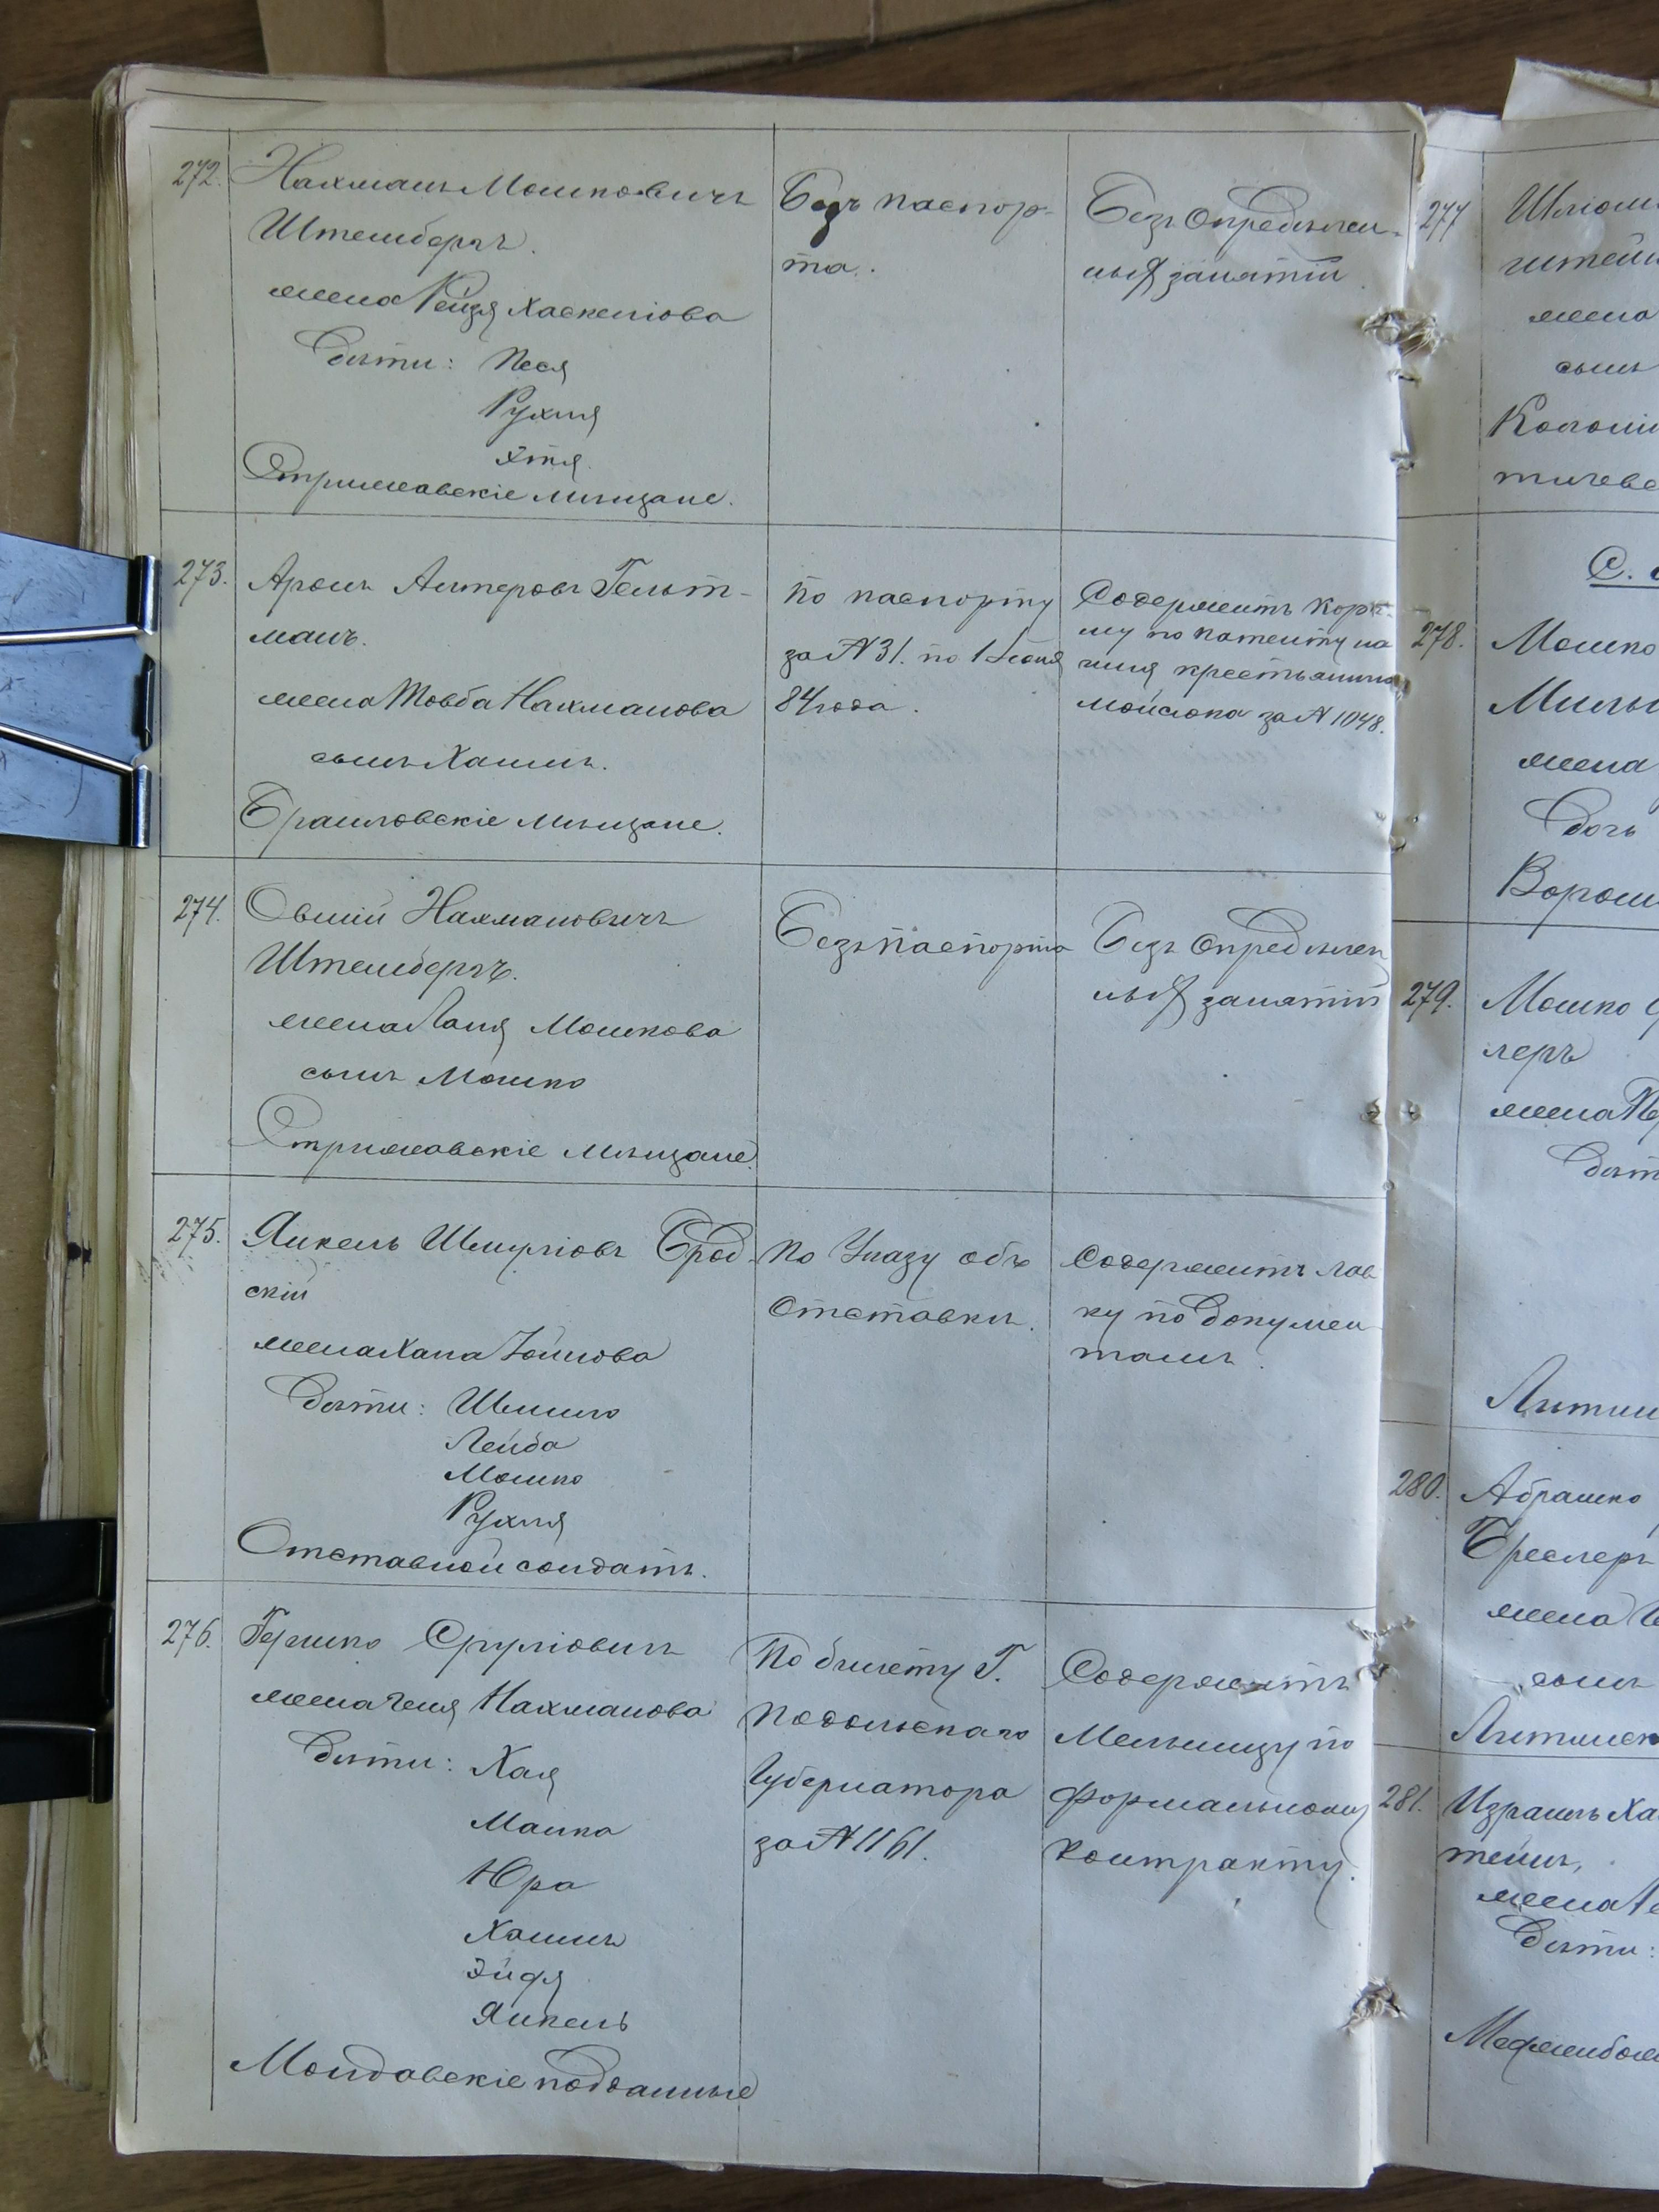 272.
Нахманъ Мошковичъ
Штенбергъ.
жена Рейзя Хаскеліова
дѣти: Песя
Рухля
Этя.
Стрижавскіе мѣщане.
Безъ паспор-
та.
Безъ опредѣлен-
ныхъ занятій
273.
Аронъ Аптеровъ Гельт-
манъ.
жена Товба Нахманова
сынъ Хаимъ.
Браиловскіе мѣщане.
По паспорту
за № 31. по 1 Іюня
84 года.
Содержитъ корч-
му по патенту на
имя крестьянина
Мойсюка за № 1048.
274.
Овшій Нахмановичъ
Штенбергъ.
жена Лаія Мошкова
сынъ Мошко
Стрижавскіе мѣщане.
Безъ паспорта
Безъ опредѣлен
ныхъ занятій
275.
Янкель Шмуліовъ Брод-
скій
жена Хана Іойнова
дѣти: Шмило
Лейба
Мошко
Рухля
Отставной солдатъ.
По Указу объ
отставкѣ.
Содержитъ лав
ку по докумен
тамъ.
276.
Гершко Сруліовичъ
жена Геня Нахманова
дѣти: Хая
Малка
Юра
Хаимъ
Эйдя
Янкель
Молдавскіе подданные
По билету Г.
Подольскаго
Губернатора
за № 1161.
Содержитъ
Мельницу по
формальному
контракту.
277
жена
сынъ
278.
Мошко
жена
дочь
279.
Мошко
леръ
жена
280.
Абрашко
Бреслеръ
жена
сынъ
281.
Израиль Ха
тейнъ,
жена
дѣти: